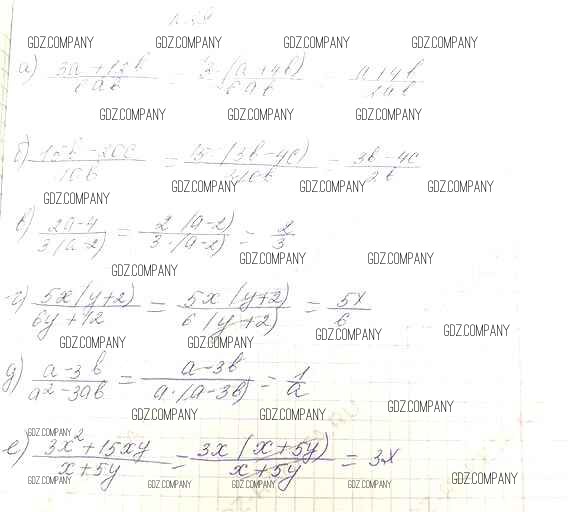 GDZ.COMPANY GDZ.COMPANY GDZ.COMPANY GDZ.COMPANY
а) (3a+12b)/(6ab) = (3·(a+4b))/(6ab) = (a+4b)/(2ab)
GDZ.COMPANY GDZ.COMPANY GDZ.COMPANY
б) (15b-20c)/(10b) = (3b-4c)/(2b)
GDZ.COMPANY GDZ.COMPANY GDZ.COMPANY GDZ.COMPANY
в) (2a-4)/(3(a-2)) = (2·(a-2))/(3·(a-2)) = 2/3
GDZ.COMPANY GDZ.COMPANY GDZ.COMPANY
г) (5x(y+2))/(6y+12) = (5x(y+2))/(6(y+2)) = 5x/6
GDZ.COMPANY GDZ.COMPANY GDZ.COMPANY GDZ.COMPANY
д) (a-3b)/(a²-3ab) = (a-3b)/(a·(a-3b)) = 1/a
GDZ.COMPANY GDZ.COMPANY GDZ.COMPANY
GDZ.COMPANY
е) (3x²+15xy)/(x+5y) = (3x(x+5y))/(x+5y) = 3x
GDZ.COMPANY GDZ.COMPANY GDZ.COMPANY GDZ.COMPANY GDZ.COMPANY